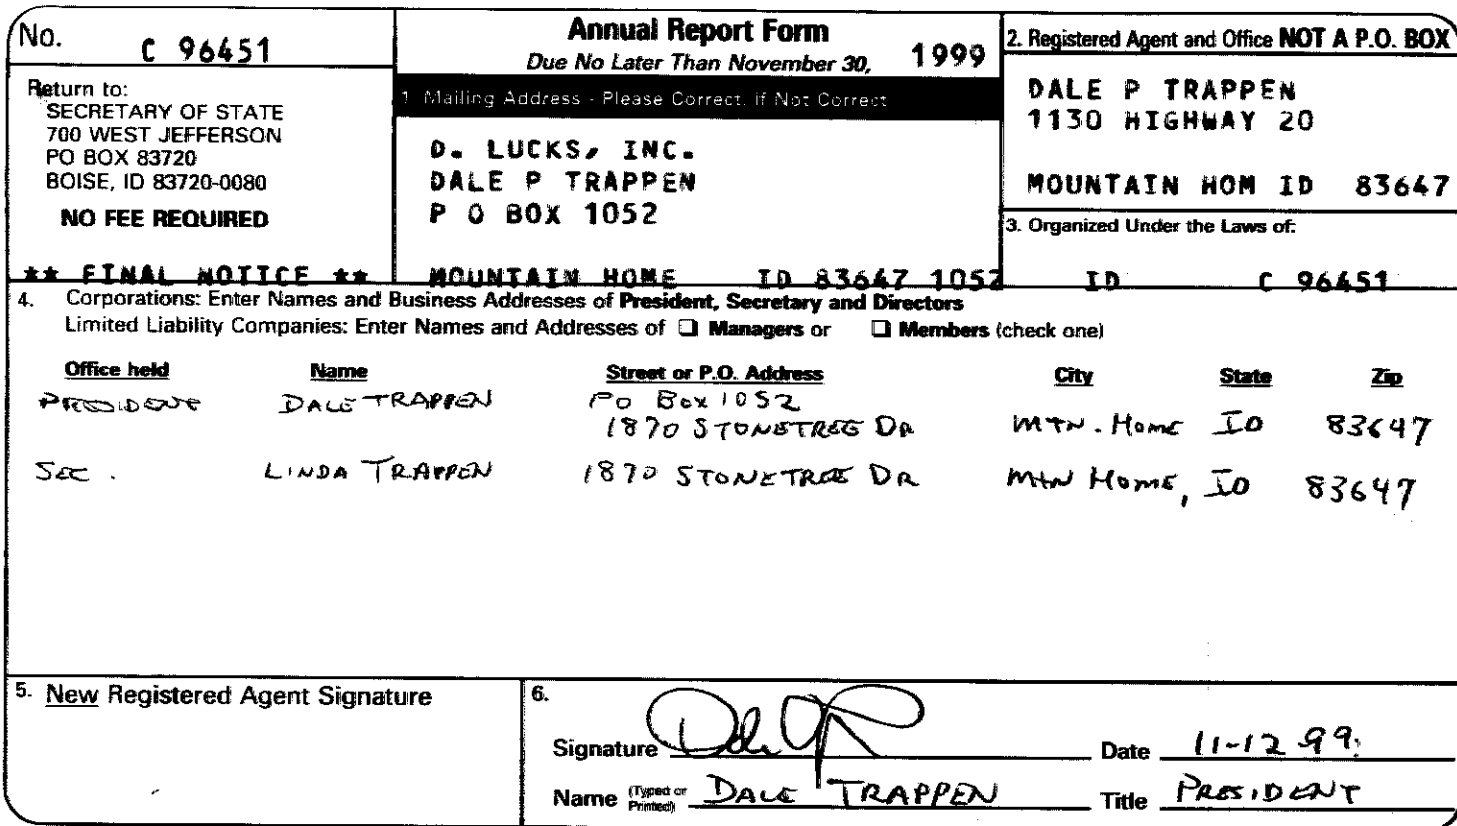 No. C 96451
Return to:
SECRETARY OF STATE
700 WEST JEFFERSON
PO BOX 83720
BOISE, ID 83720-0080
NO FEE REQUIRED
** FINAL NOTICE **
Annual Report Form
Due No Later Than November 30, 1999
1. Mailing Address - Please Correct, If Not Correct
D. LUCKS, INC.
DALE P TRAPPEN
P O BOX 1052
MOUNTAIN HOME ID 83647 1052
2. Registered Agent and Office NOT A P.O. BOX
DALE P TRAPPEN
1130 HIGHWAY 20
MOUNTAIN HOM ID 83647
3. Organized Under the Laws of:
ID C 96451
4. Corporations: Enter Names and Business Addresses of President, Secretary and Directors
Limited Liability Companies: Enter Names and Addresses of ❑ Managers or ❑ Members (check one)
Office held Name Street or P.O. Address City State Zip
PRESIDENT DALE TRAPPEN PO Box 1052
1870 STONETREE DR MTN. Home ID 83647
SEC. LINDA TRAPPEN 1870 STONETREE DR MTN HOME, ID 83647
5. New Registered Agent Signature
6.
Signature Date 11-12-99
Name (Typed or Printed) DALE TRAPPEN Title PRESIDENT